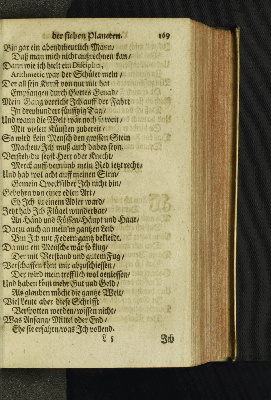 der sieben Planeten. 169
Bin gar ein abendtheurlich Mann/
Daß man mich nicht außrechnen kan/
Dann wie ich hielt ein Disciplin,
Arithmetic war der Schüler mein/
Der all sein Kunst von mir hat
Empfangen durch Gottes Genad/
Mein Gang verricht Ich auff der Fahrt
In dreyhundert fünfftzig Tag/
Und wann die Welt wär noch so weit/
Mit vielen Künsten zubereit/
So wird kein Mensch den grossen Stein
Machen/ Ich muß auch dabey seyn.
Versteh/du seyst Herr oder Knecht/
Merck auff/vernimb mein Red jetzt recht/
Und hab wol acht auff meinen Sinn/
Gemein Quecksilber Ich nicht bin/
Gebohren von einer edlen Art/
Eh Ich zu einem Adler ward/
Jetzt hab Ich Flügel wunderbar/
An Händ und Füssen/Häupt und Haar/
Darzu auch an mein'm gantzen Leib
Bin Ich mit Federn gantz bekleidt.
Da nun ein Mensche wär so klug/
Der mit Verstand und gutem Fug/
Verschaffen könt mir abzuschiessen/
Der wird mein trefflich wol geniessen/
Und haben könt mehr Gut und Geld/
Als glauben möcht die gantze Welt/
Viel Leute aber diese Schrifft
Verspotten werden/wissen nicht/
Was Anfang/ Mittel oder End/
Ehe sie erfahrn/was Ich vollend.
L 5 Ich